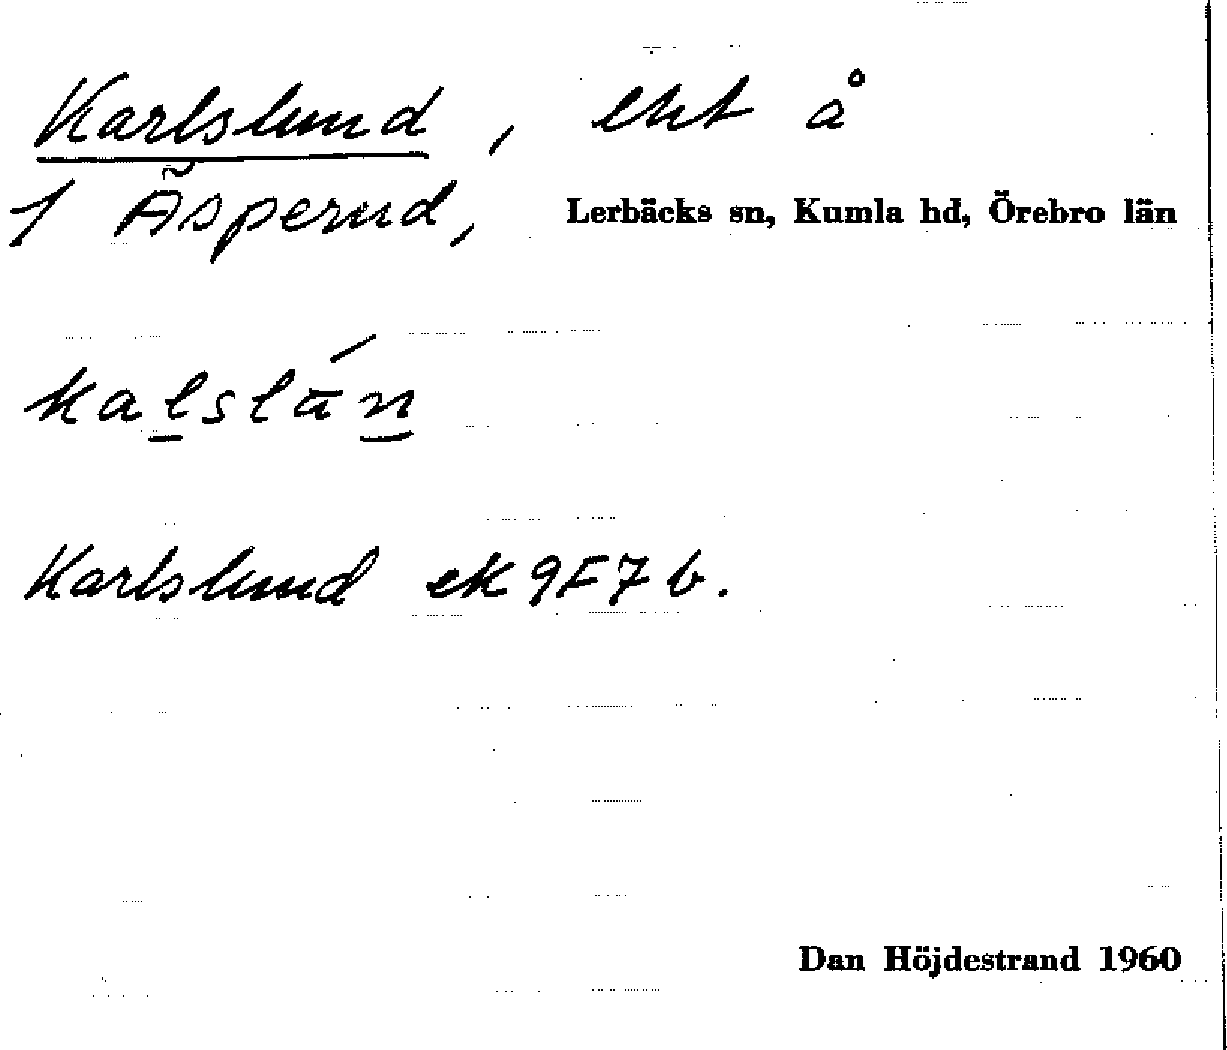 Karlslund, lht å
1 Äsperud, Lerbäcks sn, Kumla hd, Örebro län
kalslún
Karlslund ek 9F7b.
Dan Höjdestrand 1960